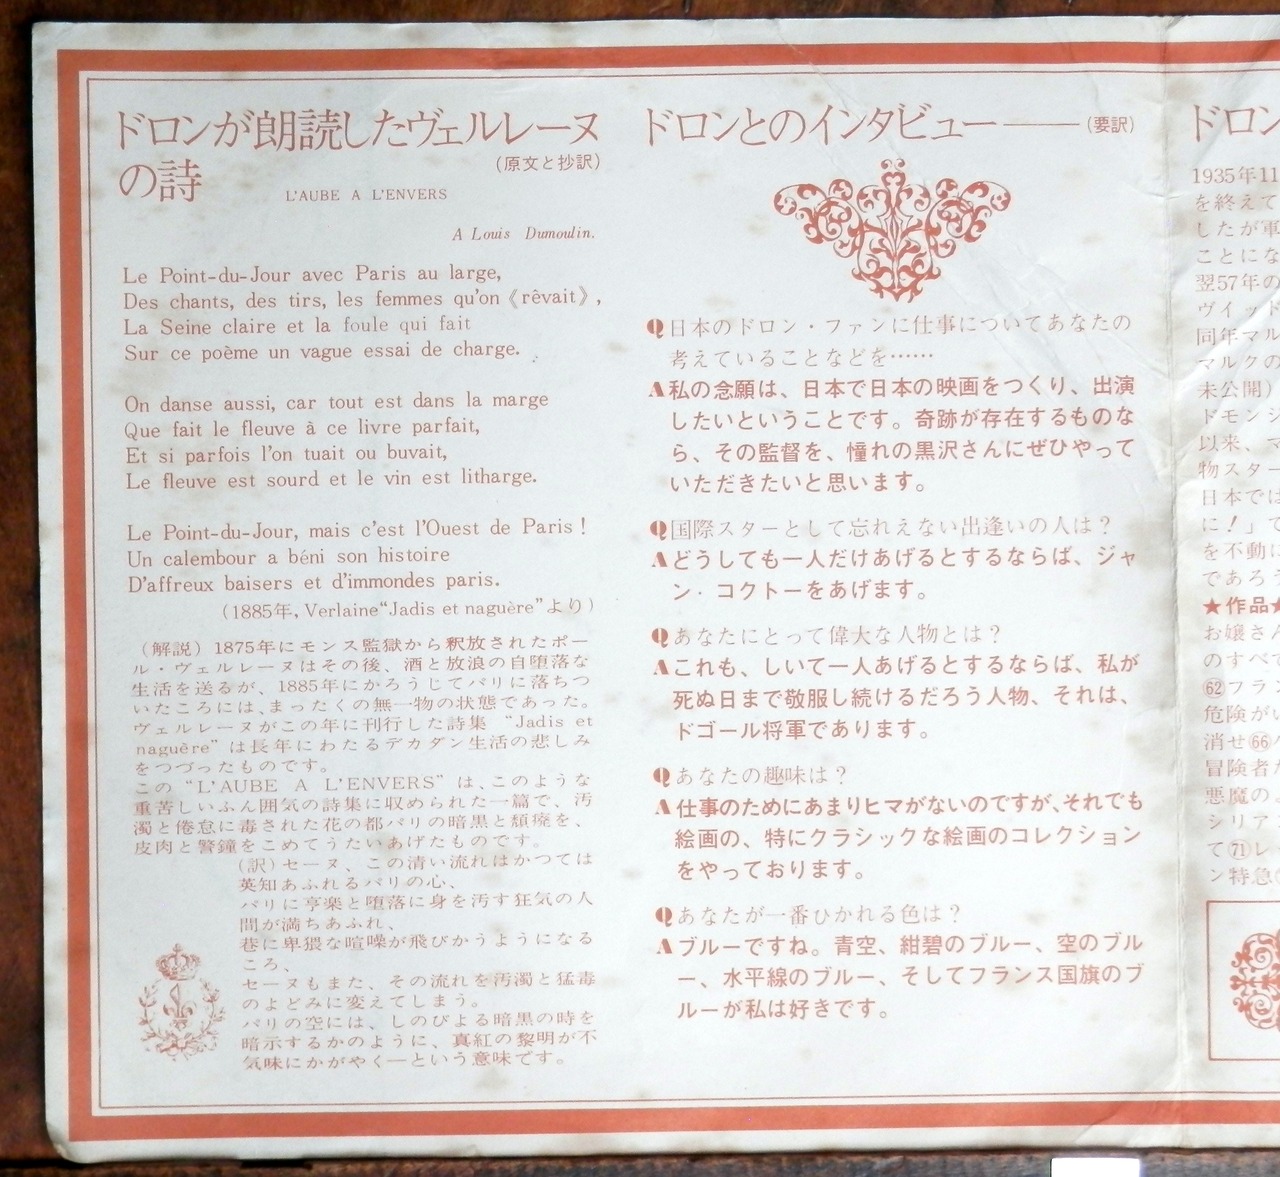 ドロンが朗読したヴェルレーヌ
の詩
(原文と抄訳)
L'AUBE A L'ENVERS
A Louis Dumoulin.
Le Point-du-Jour avec Paris au large,
Des chants, des tirs, les femmes qu'on《rêvait》,
La Seine claire et la foule qui fait
Sur ce poème un vague essai de charge.
On danse aussi, car tout est dans la marge
Que fait le fleuve à ce livre parfait,
Et si parfois l'on tuait ou buvait,
Le fleuve est sourd et le vin est litharge.
Le Point-du-Jour, mais c'est l'Ouest de Paris !
Un calembour a béni son histoire
D'affreux baisers et d'immondes paris.
(1885年, Verlaine“Jadis et naguère”より)
(解説) 1875年にモンス監獄から釈放されたポー
ル・ヴェルレーヌはその後、酒と放浪の自堕落な
生活を送るが、1885年にかろうじてパリに落ちつ
いたころには、まったくの無一物の状態であった。
ヴェルレーヌがこの年に刊行した詩集 “Jadis et
naguère” は長年にわたるデカダン生活の悲しみ
をつづったものです。
この “L'AUBE A L'ENVERS” は、このような
重苦しいふん囲気の詩集に収められた一篇で、汚
濁と倦怠に毒された花の都パリの暗黒と頽廃を、
皮肉と警鐘をこめてうたいあげたものです。
(訳)セーヌ、この清い流れはかつては
英知あふれるパリの心、
パリに享楽と堕落に身を汚す狂気の人
間が満ちあふれ、
巷に卑猥な喧噪が飛びかうようになる
ころ、
セーヌもまた、その流れを汚濁と猛毒
のよどみに変えてしまう。
パリの空には、しのびよる暗黒の時を
暗示するかのように、真紅の黎明が不
気味にかがやく―という意味です。
ドロンとのインタビュー――(要訳)
Q日本のドロン・ファンに仕事についてあなたの
考えていることなどを……
A私の念願は、日本で日本の映画をつくり、出演
したいということです。奇跡が存在するものな
ら、その監督を、憧れの黒沢さんにぜひやって
いただきたいと思います。
Q国際スターとして忘れえない出逢いの人は?
Aどうしても一人だけあげるとするならば、ジャ
ン・コクトーをあげます。
Qあなたにとって偉大な人物とは?
Aこれも、しいて一人あげるとするならば、私が
死ぬ日まで敬服し続けるだろう人物、それは、
ドゴール将軍であります。
Qあなたの趣味は?
A仕事のためにあまりヒマがないのですが、それでも
絵画の、特にクラシックな絵画のコレクション
をやっております。
Qあなたが一番ひかれる色は?
Aブルーですね。青空、紺碧のブルー、空のブル
ー、水平線のブルー、そしてフランス国旗のブ
ルーが私は好きです。
ドロン
1935年11
を終えて
したが軍
ことにな
翌57年の
ヴィッド
同年マル
マルクの
未公開)
ドモンジ
以来、マ
物スター
日本では
に!」で
を不動に
であろう
★作品★
お嬢さん
のすべて
62フラン
危険がい
消せ66パ
冒険者た
悪魔の
シリア
て71レ
ン特急